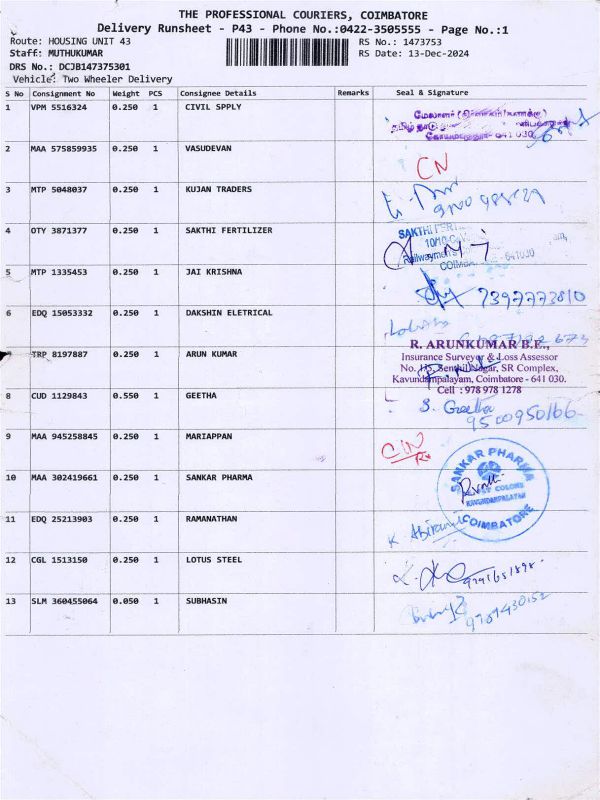 THE PROFESSIONAL COURIERS, COIMBATORE
Delivery Runsheet - P43 - Phone No.:0422-3505555 - Page No.:1
Route: HOUSING UNIT 43 RS No.: 1473753
Staff: MUTHUKUMAR RS Date: 13-Dec-2024
DRS No.: DCJB147375301
Vehicle: Two Wheeler Delivery
S No Consignment No Weight PCS Consignee Details Remarks Seal & Signature
1 VPM 5516324 0.250 1 CIVIL SPPLY
தமிழ் நாடு
641 030
2 MAA 575859935 0.250 1 VASUDEVAN
CN
3 MTP 5048037 0.250 1 KUJAN TRADERS
4 OTY 3871377 0.250 1 SAKTHI FERTILIZER
SAKTHI
641030
5 MTP 1335453 0.250 1 JAI KRISHNA
7397773810
6 EDQ 15053332 0.250 1 DAKSHIN ELETRICAL
TRP 8197887 0.250 1 ARUN KUMAR
R. ARUNKUMAR B.E.,
Insurance Surveyor & Loss Assessor
No. 115, Senthil Nagar, SR Complex,
Kavundampalayam, Coimbatore - 641 030.
Cell : 978 978 1278
8 CUD 1129843 0.550 1 GEETHA
S. Geetha
9500950166
9 MAA 945258845 0.250 1 MARIAPPAN
10 MAA 302419661 0.250 1 SANKAR PHARMA
SANKAR PHARMA
KAVUNDAMPALAYAM
COIMBATORE
11 EDQ 25213903 0.250 1 RAMANATHAN
12 CGL 1513150 0.250 1 LOTUS STEEL
13 SLM 360455064 0.050 1 SUBHASIN